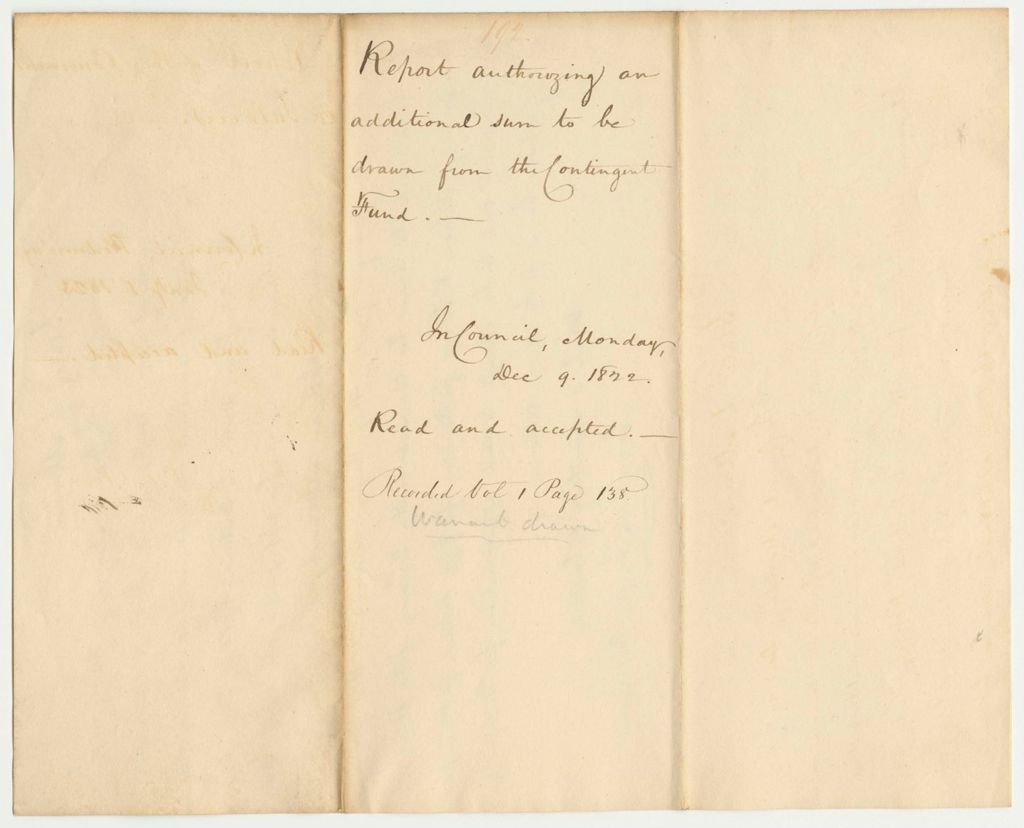 192
Report authorizing an
additional sum to be
drawn from the Contingent
Fund. —
In Council, Monday,
Dec 9. 1822.
Read and accepted. —
Recorded Vol 1 Page 138
Warrant drawn